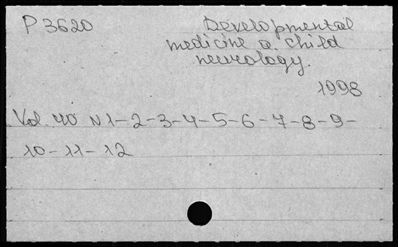 P 3620 Developmental
medicine a. child
neurology.
1998
Vol. 40 N 1-2-3-4-5-6-7-8-9-
10-11-12